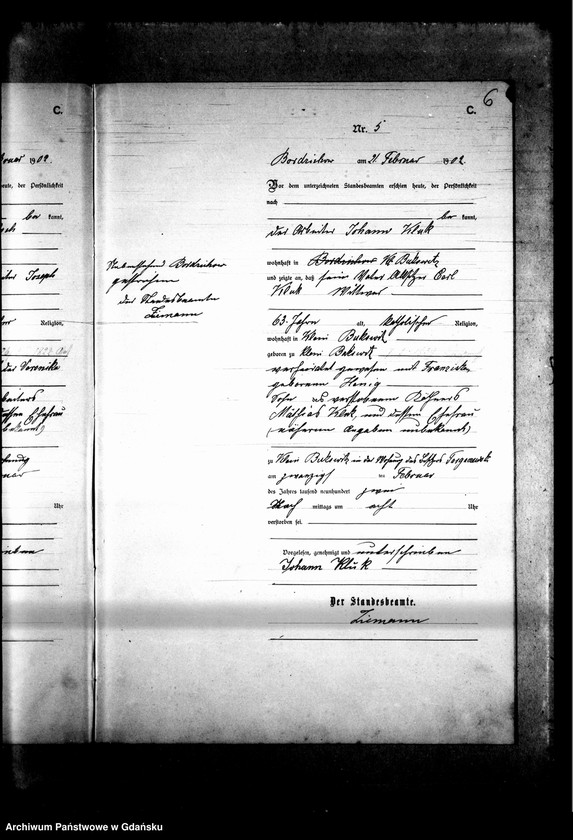 C.
1902.
heute, der Persönlichkeit
be kannt,
Joseph
Religion,
Veronika
Ehefrau
Uhr
C.
6
Nr. 5
Bordzichow am 21 Februar 1902.
Vor dem unterzeichneten Standesbeamten erschien heute, der Persönlichkeit
nach
be kannt,
der Arbeiter Johann Kluk
Nebenstehend Bordzichow
gestrichen
der Standesbeamte
Ziemann
wohnhaft in Bordzichow Kl Bukowitz
und zeigte an, daß sein Vater Altsitzer Carl
Kluk Wittwer
63 Jahre alt, katholischer Religion,
wohnhaft in Klein Bukowitz
geboren zu Klein Bukowitz
verheirathet gewesen mit Franziska
geborenen Henig
Sohn des verstorbenen Käthners
Mathias Kluk, und dessen Ehefrau
(näheren Angaben unbekannt)
zu Klein Bukowitz in der Wohnung des
am zwanzigs ten Februar
des Jahres tausend neunhundert zwei
Nach mittags um acht Uhr
verstorben sei.
Vorgelesen, genehmigt und unterschrieben
Johann Kluk
Der Standesbeamte.
Ziemann
Archiwum Państwowe w Gdańsku